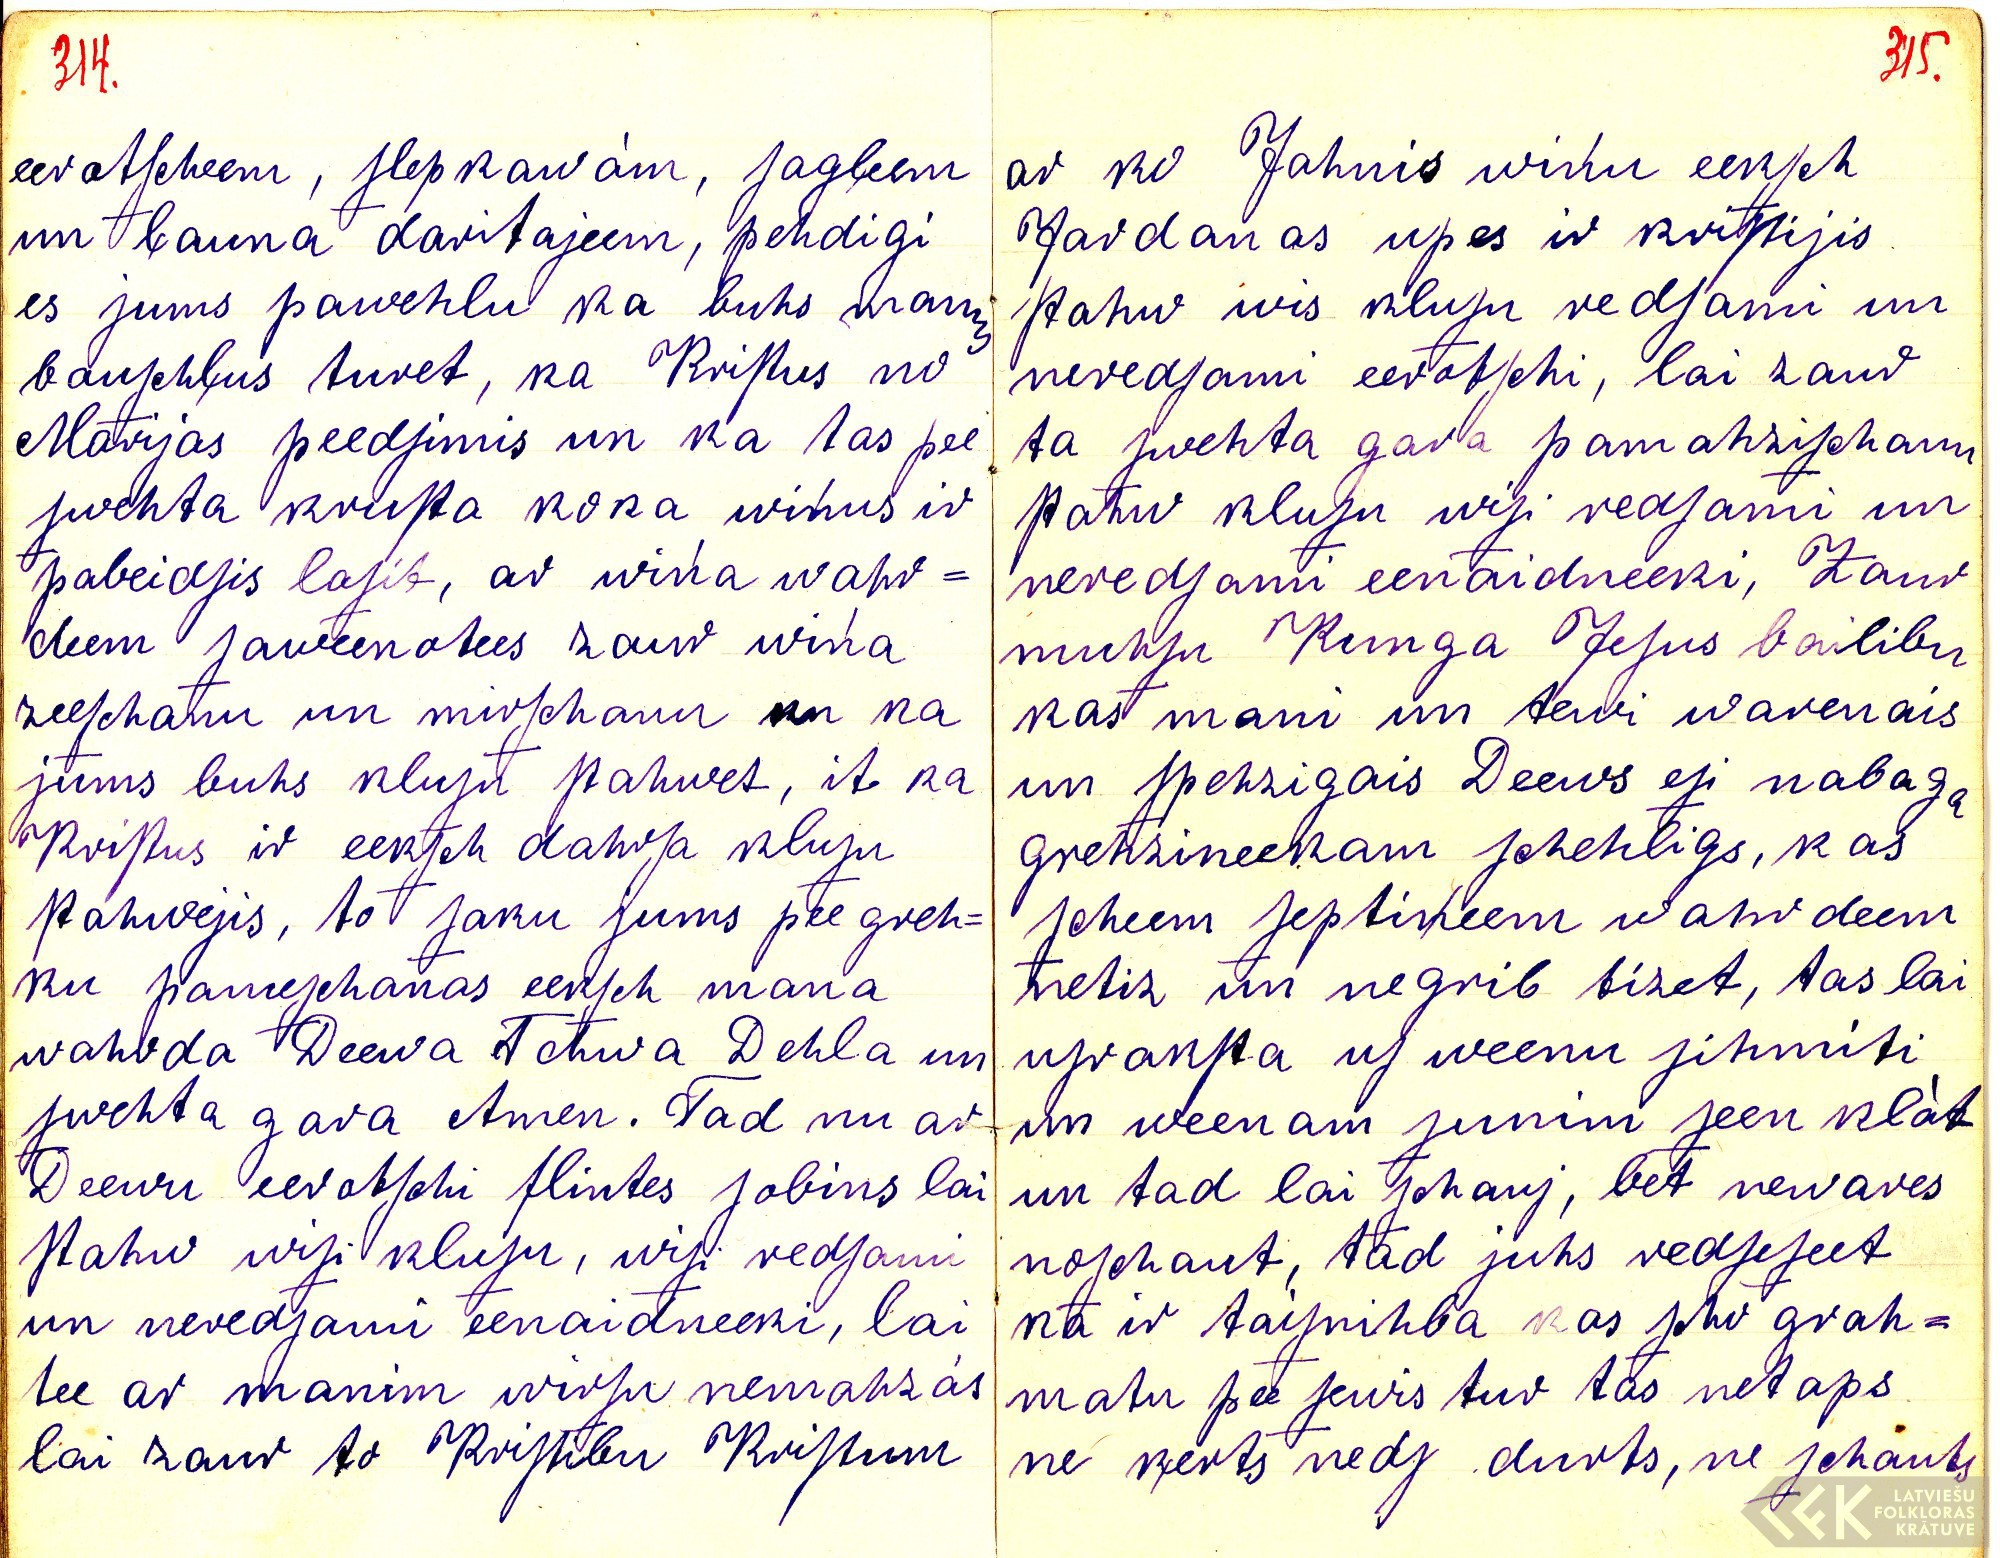 314.
eerotscheem, slepkawám, sagleem
un launa daritajeem, pehdigi
es jums pawehlu ka buhs manus
bauschlus turet, ka Kristus no
Marijas peedsimis un ka tas pee
swehta krusta koka wińus ir
pabeidsis lasit, ar wińa wahr=
deem saweenotees zaur wińa
zeeschanu un mirschanu un ka
jums buhs klusu stahwet, it ka
Kristus ir eeksch dahrsa klusu
stahwejis, to saku jums pee greh=
ku pameschanas eeksch mana
wahrda Deewa Tehwa Dehla un
swehta gara Amen. Tad nu ar
Deewu eerotschi flintes sobins lai
stahw wisi klusu, wisi redsami
un neredsami eenaidneeki, lai
tee ar manim wirsu nemahzás
lai zaur to Kristibu Kristum
315.
ar ko Jahnis wińu eeksch
Jardanas upes ir kristijis
stahw wis klusu redsami un
neredsami eerotschi, lai zaur
ta swehta gara pamahzischanu
stahw klusu wisi redsami un
neredsami eenaidneeki, Zaur
muhsu Kunga Jesus bailibu
kas mani un tewi warenais
un spehzigais Deews esi nabaga
grehzineekam schehligs, kas
scheem septińeem wahrdeem
netiz un negrib tizet, tas lai
usraksta us weenu sihmiti
un weenam sunim seen klàt
un tad lai schauj, bet newares
noschaut, tad juhs redseseet
ka ir taisnihba kas scho grah=
matu pee sewis tur tas netaps
ne kerts neds durts, ne schauts
LATVIEŠU
FOLKLORAS
KRĀTUVE